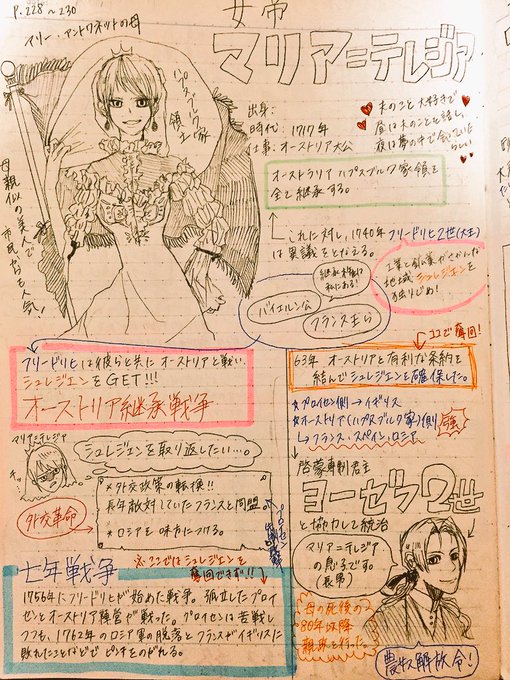 P.228～230
マリー・アントワネットの母
女帝
マリア=テレジア
ハプスブルク家
領主
母親似の美人で
市民からも人気!
出身:
時代: 1717年
仕事: オーストリア大公
夫のこと大好きで
昼は夫のことを話し、
夜は夢の中で会っていた
らしい
オーストラリアハプスブルク家領を
全て継承する。
これに対し、1740年フリードリヒ2世(大王)
は異議をとなえる。
工業と鉱業がさかんな
地域シュレジエンを
独りじめ!
継承権は
私にある!
バイエルン公
フランス王ら
フリードリヒは彼らと共にオーストリアと戦い、
シュレジエンをGET!!!
オーストリア継承戦争
ココで奪回!
63年 オーストリアと有利な条約を
結んでシュレジエンを確保した。
☆プロイセン側→イギリス
☆オーストリア(ハプスブルク家)側
→フランス、スペイン、ロシア
マリア=テレジア
シュレジエンを取り返したい…。
外交革命
*外交政策の転換!!
長年敵対していたフランスと同盟。
*ロシアを味方につける。
啓蒙専制君主
ヨーゼフ2世
と協力して統治
マリア=テレジア
の息子です。
(長男)
母の死後の
80年以降
親政を行った。
農奴解放令!
七年戦争
※ココではシュレジエンを
奪回できず!!
1756年にフリードリヒが始めた戦争。孤立したプロイ
センとオーストリア陣営が戦った。プロイセンは苦戦し
つつも、1762年のロシア軍の脱落とフランスがイギリスに
敗れたことなどでピンチをのがれる。